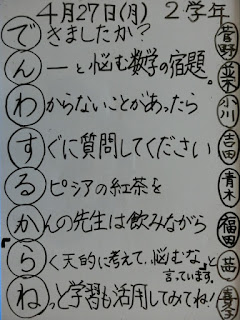 4月27日(月) 2学年
できましたか? 菅野
んーと悩む数学の宿題。 並木
わからないことがあったら 小川
すぐに質問してください 吉田
るピシアの紅茶を 青木
かんの先生は飲みながら 福田
「らく天的に考えて、悩むな」と言っています。
ねっと学習も活用してみてね!